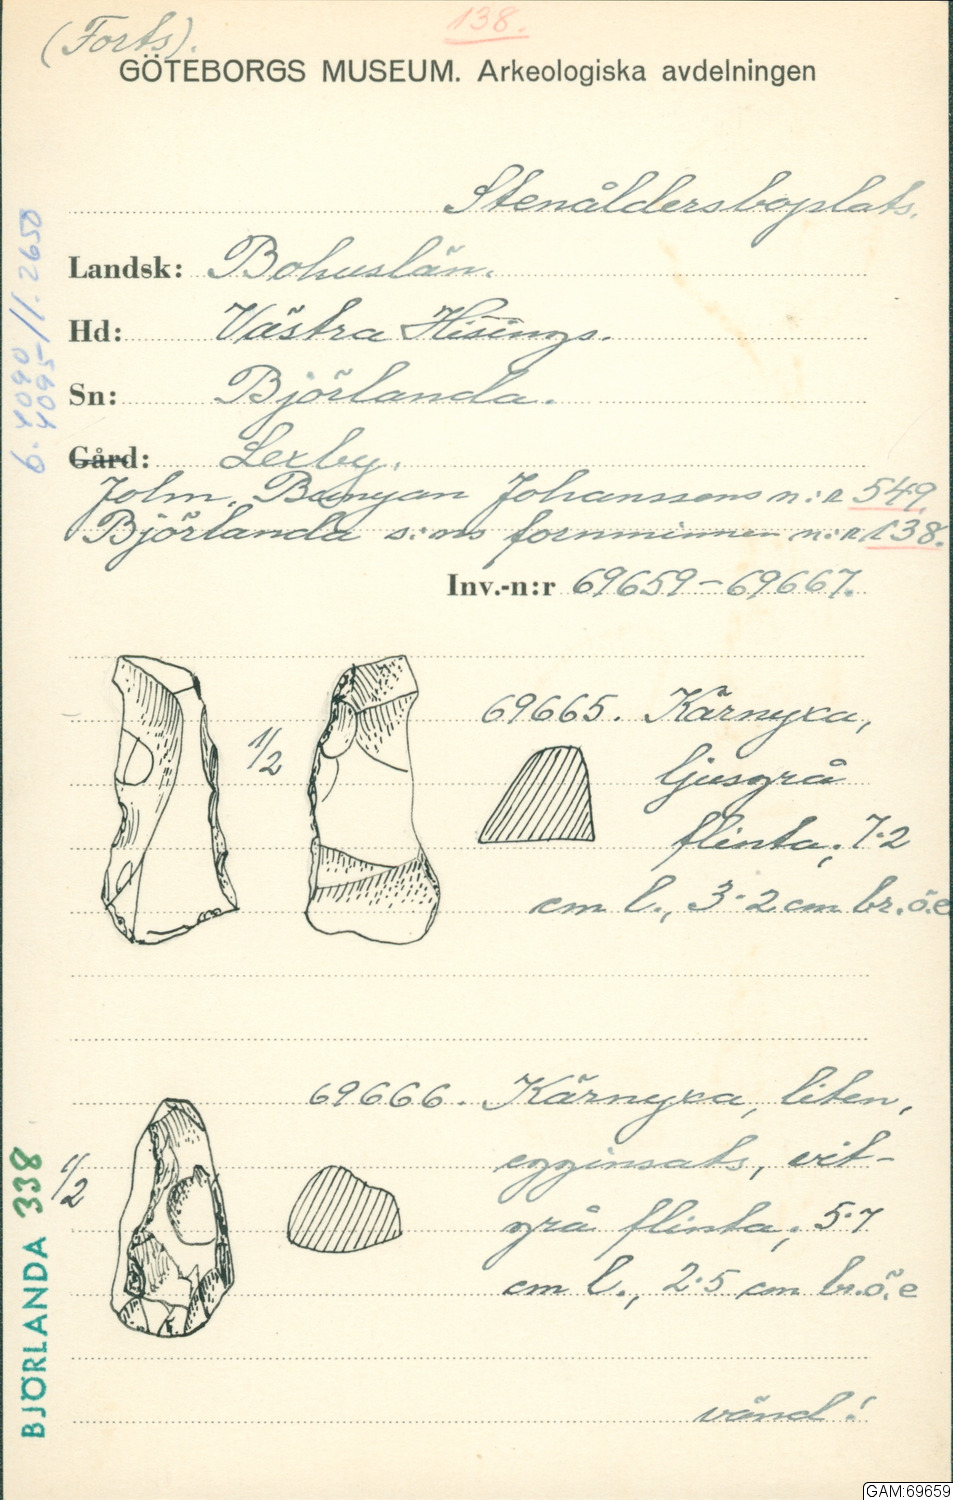 138.
(Forts).
GÖTEBORGS MUSEUM. Arkeologiska avdelningen
Stenåldersboplats.
Landsk: Bohuslän.
Hd: Västra Hisings.
Sn: Björlanda.
Gård: Lexby.
John. Bunyan Johanssons n:r 549.
Björlanda s:ns fornminnen n:r 138.
Inv.-n:r 69659-69667.
69665. Kärnyxa,
1/2
ljusgrå
flinta; 7·2
cm l., 3·2 cm br.ö.e
69666. Kärnyxa, liten,
1/2
egginsats, vit-
grå flinta; 5·7
cm l., 2·5 cm br.ö.e
vänd!
6. 4090/11. 2650
4095
BJÖRLANDA 338
GAM:69659